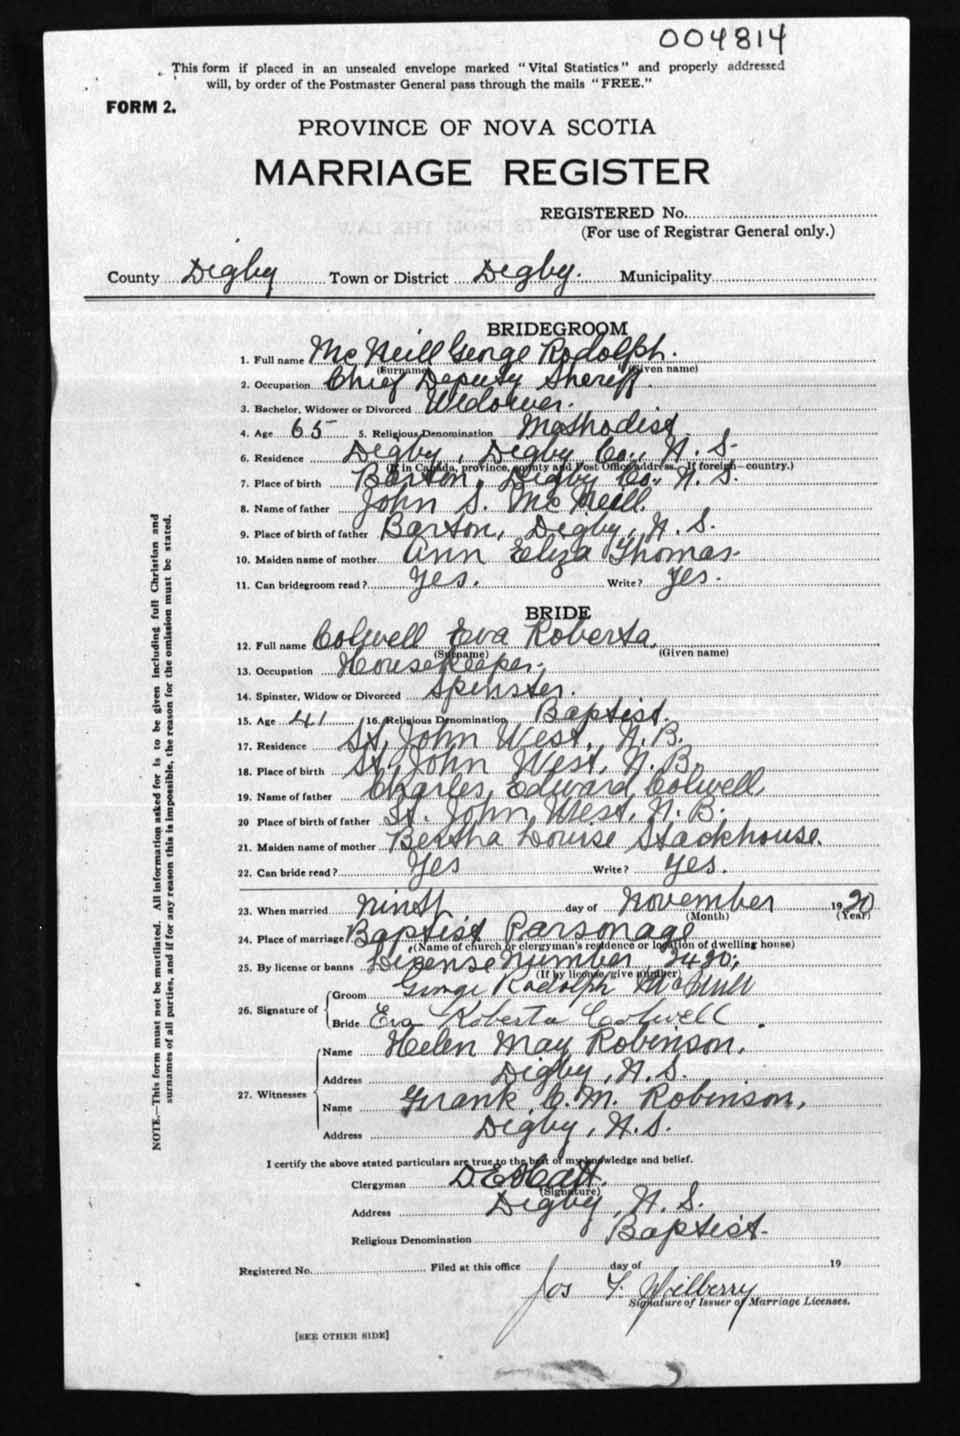 004814
This form if placed in an unsealed envelope marked "Vital Statistics" and properly addressed
will, by order of the Postmaster General pass through the mails "FREE."
FORM 2.
PROVINCE OF NOVA SCOTIA
MARRIAGE REGISTER
REGISTERED No.
(For use of Registrar General only.)
County Digby Town or District Digby. Municipality
BRIDEGROOM
1. Full name McNeill George Rodolph.
(Surname) (Given name)
2. Occupation Chief Deputy Sheriff.
3. Bachelor, Widower or Divorced Widower.
4. Age 65 5. Religious Denomination Methodist.
6. Residence Digby, Digby Co., N. S.
(If in Canada, province, county and Post Office address. If foreign—country.)
7. Place of birth Barton, Digby Co., N. S.
8. Name of father John S. McNeill.
9. Place of birth of father Barton, Digby, N. S.
10. Maiden name of mother Ann Eliza Thomas.
11. Can bridegroom read? Yes. Write? Yes.
BRIDE
12. Full name Colwell Eva Roberta.
(Surname) (Given name)
13. Occupation Housekeeper.
14. Spinster, Widow or Divorced Spinster.
15. Age 41 16. Religious Denomination Baptist.
17. Residence St. John West, N. B.
18. Place of birth St. John West, N. B.
19. Name of father Charles Edward Colwell
20 Place of birth of father St. John West, N. B.
21. Maiden name of mother Bertha Louise Stackhouse.
22. Can bride read? Yes Write? Yes.
23. When married Ninth day of November 1920
(Month) (Year)
24. Place of marriage Baptist Parsonage
(Name of church or clergyman's residence or location of dwelling house)
25. By license or banns License Number 2420.
(If by license, give number)
26. Signature of Groom George Rodolph McNeill
Bride Eva Roberta Colwell.
27. Witnesses Name Helen May Robinson.
Address Digby, N. S.
Name Frank C. M. Robinson,
Address Digby, N. S.
I certify the above stated particulars are true to the best of my knowledge and belief.
Clergyman
(Signature)
Address Digby, N. S.
Religious Denomination Baptist.
Registered No. Filed at this office day of 19
Jos
Signature of Issuer of Marriage Licenses.
[SEE OTHER SIDE]
NOTE.—This form must not be mutilated. All information asked for is to be given including full Christian and
surnames of all parties, and if for any reason this is impossible, the reason for the omission must be stated.